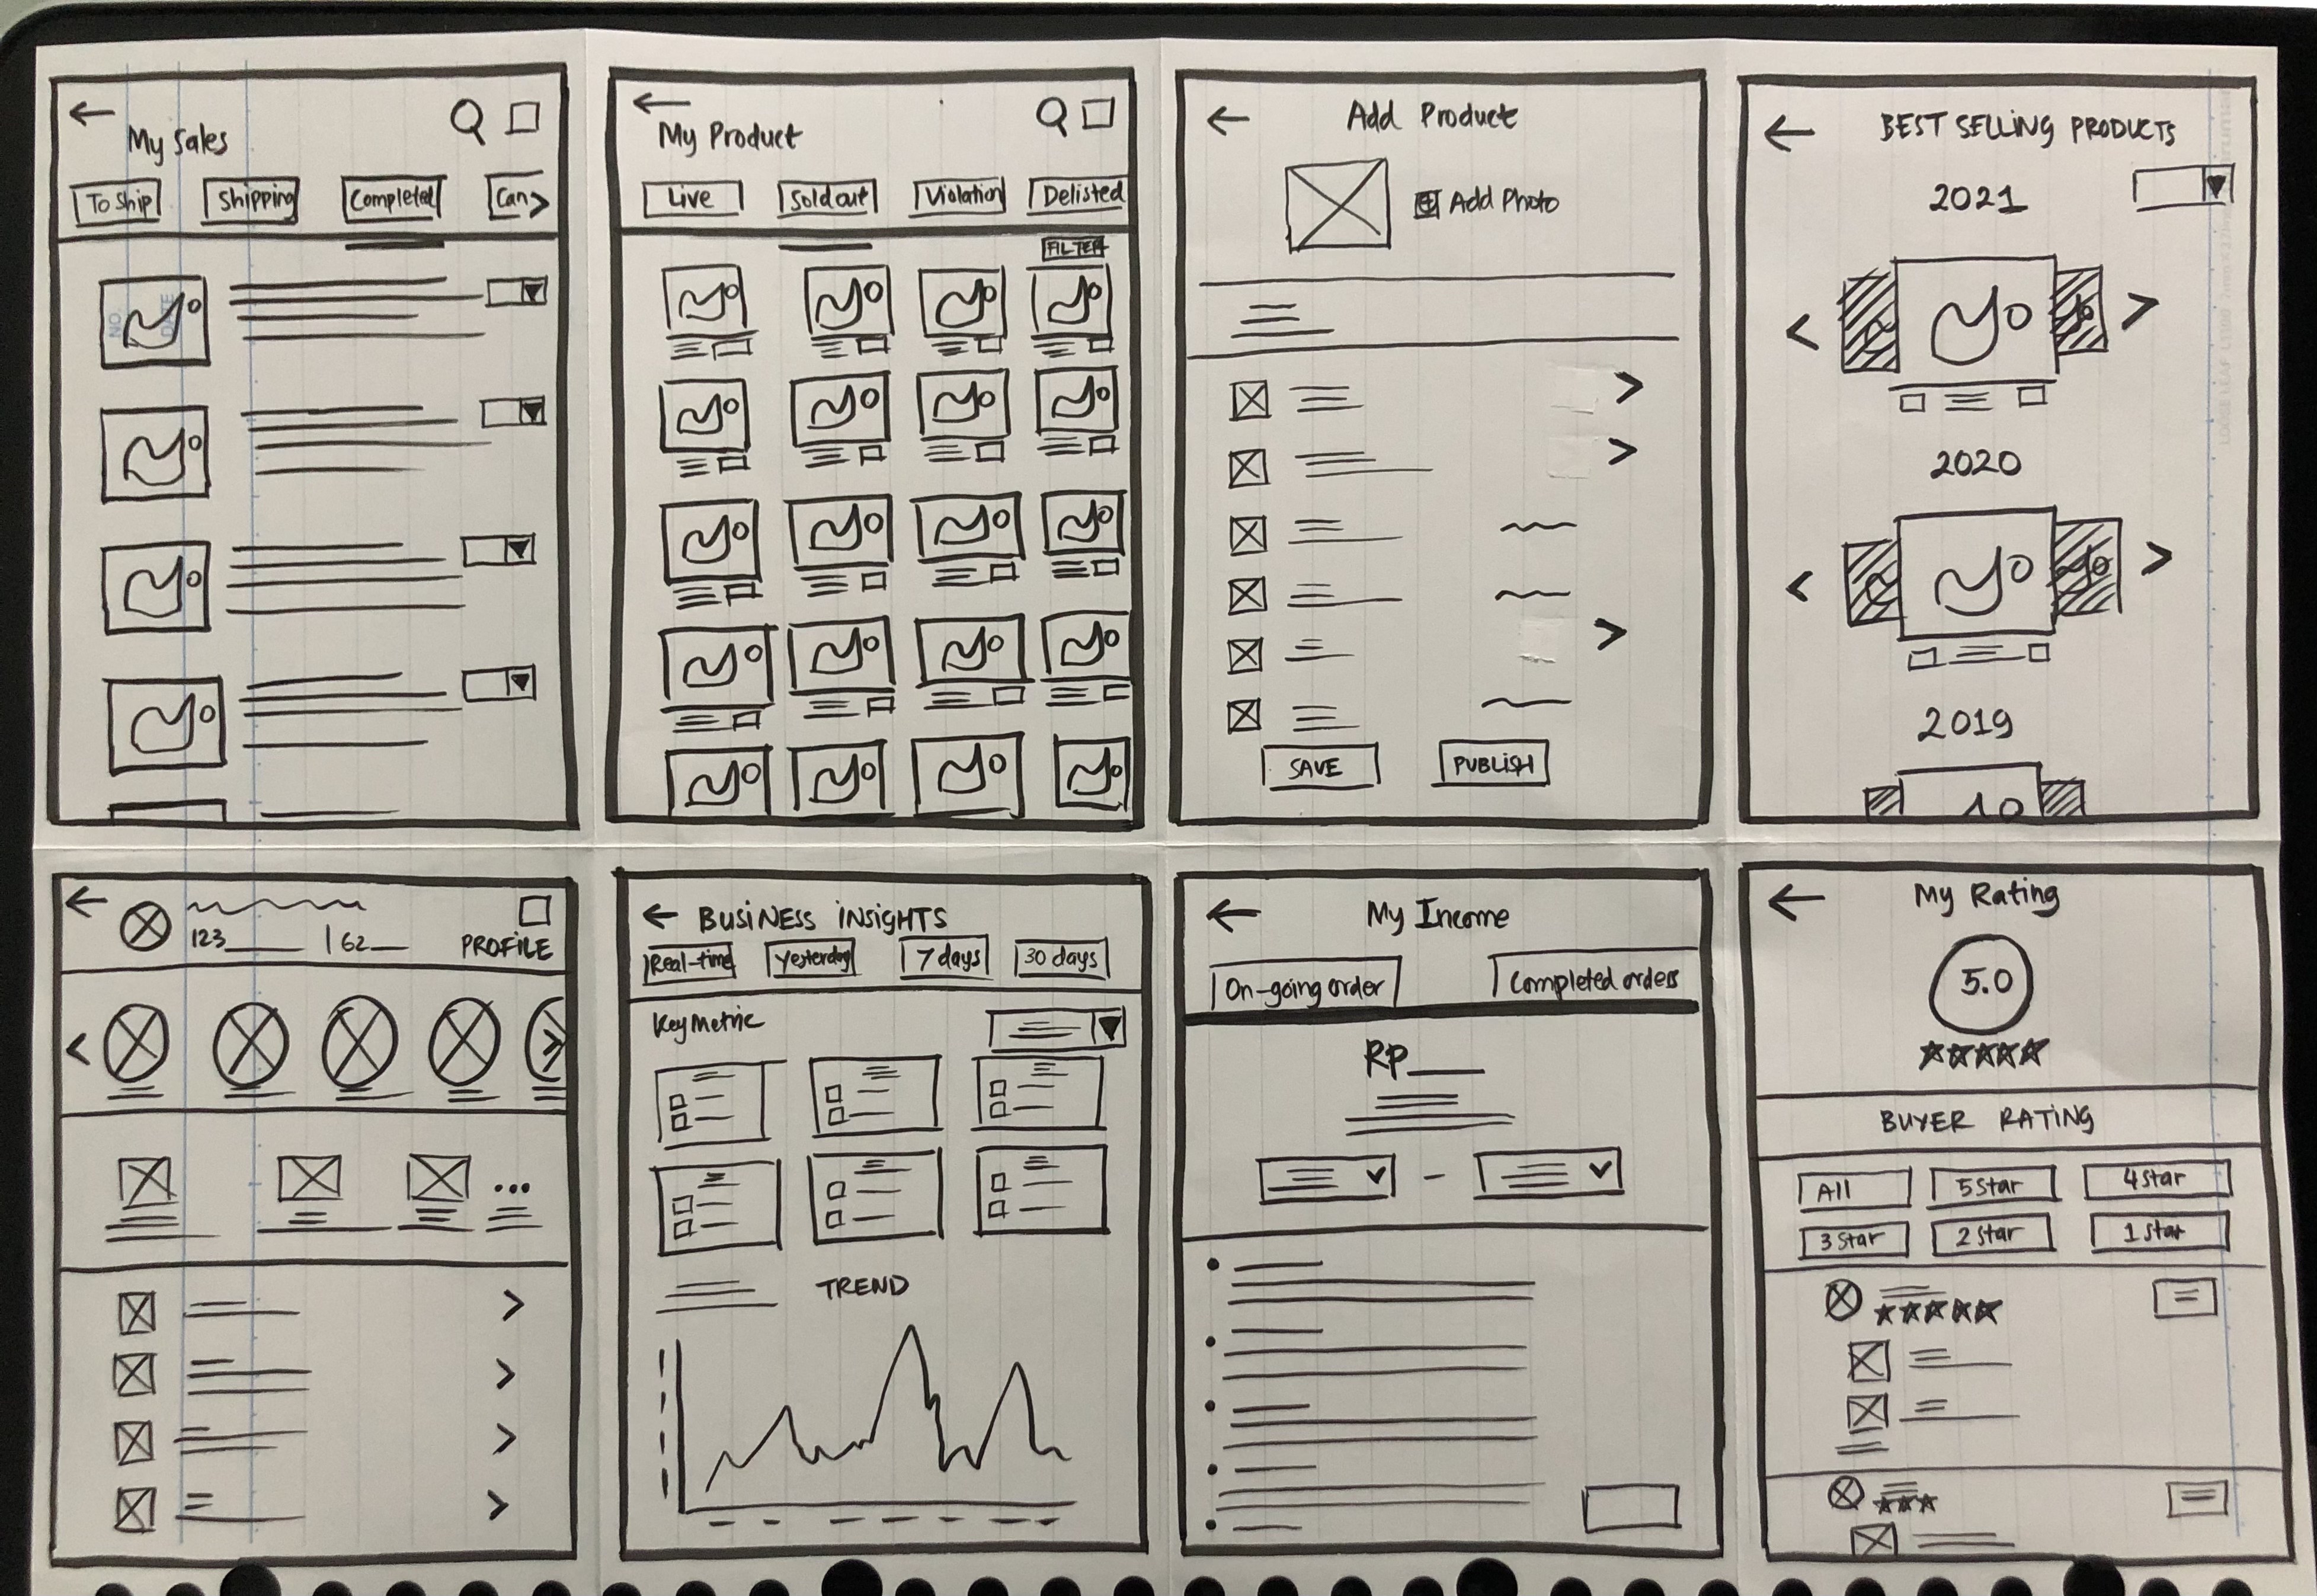 My Sales
To Ship Shipping Completed Can>
My Product
Live Sold out Violation Delisted
FILTER
Add Product
Add Photo
SAVE PUBLISH
BEST SELLING PRODUCTS
2021
2020
2019
123 62
PROFILE
BUSINESS INSIGHTS
Real-time Yesterday 7 days 30 days
Key Metric
TREND
My Income
On-going order Completed orders
RP
My Rating
5.0
BUYER RATING
All 5 Star 4 Star
3 Star 2 Star 1 Star
NO.
DATE